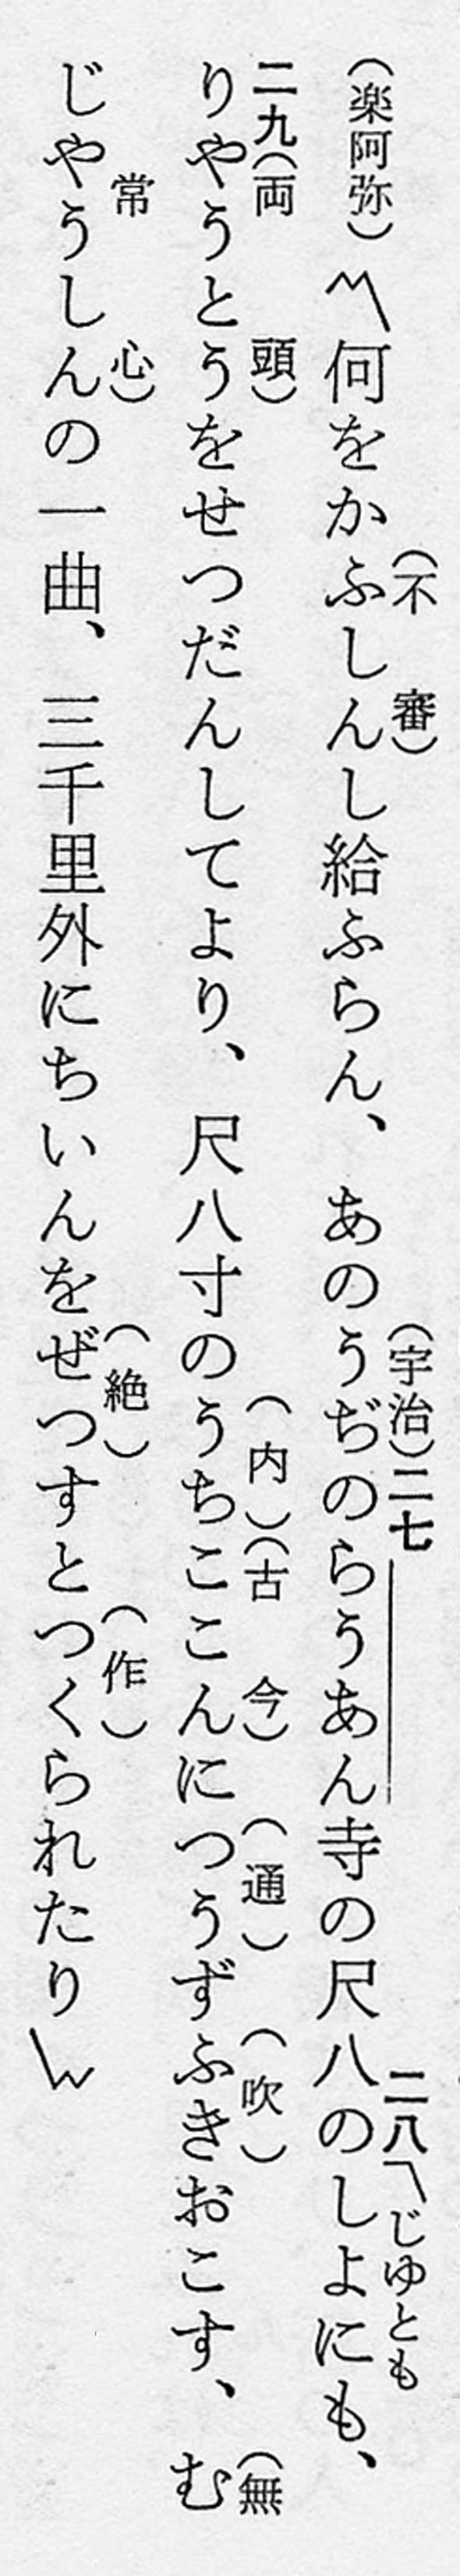 （楽阿弥）〽何をかふしんし給ふらん、あのうぢのらうあん寺の尺八のしよにも、
（不審）
（宇治）二七
二八〽じゆとも
りやうとうをせつだんしてより、尺八寸のうちここんにつうずふきおこす、む
二九（両頭）
（内）（古今）
（通）
（吹）
（無
じやうしんの一曲、三千里外にちいんをぜつすとつくられたり
常心）
（絶）
（作）